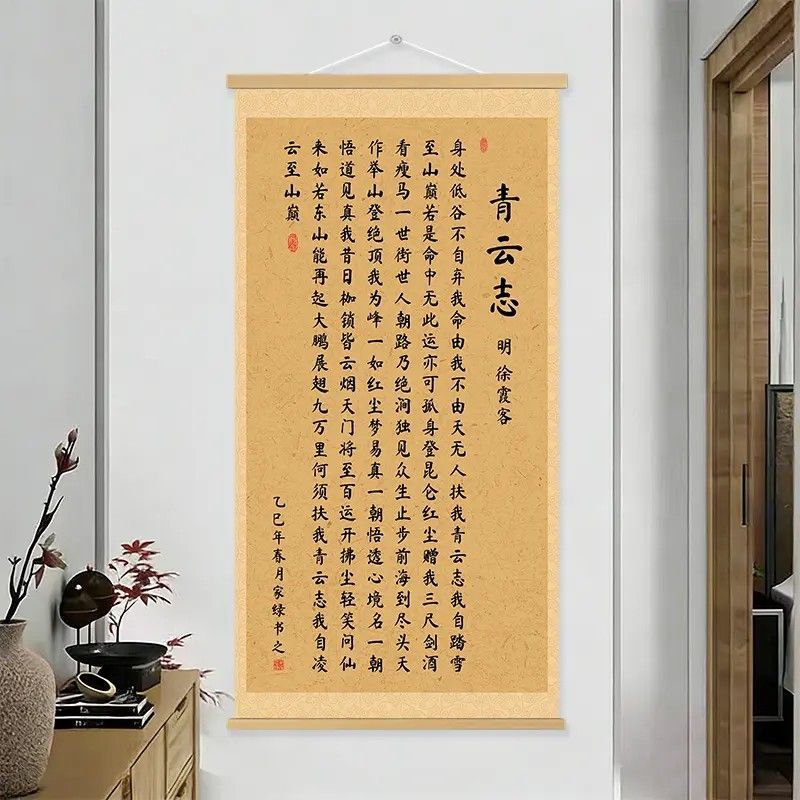 青云志
明 徐霞客
身处低谷不自弃我命由我不由天无人扶我青云志我自踏雪
至山巅若是命中无此运亦可孤身登昆仑红尘赠我三尺剑酒
看瘦马一世街世人朝路乃绝涧独见众生止步前海到尽头天
作举山登绝顶我为峰一如红尘梦易真一朝悟透心境名一朝
悟道见真我昔日枷锁皆云烟天门将至百运开拂尘轻笑问仙
来如若东山能再起大鹏展翅九万里何须扶我青云志我自凌
云至山巅
乙巳年春月家绿书之